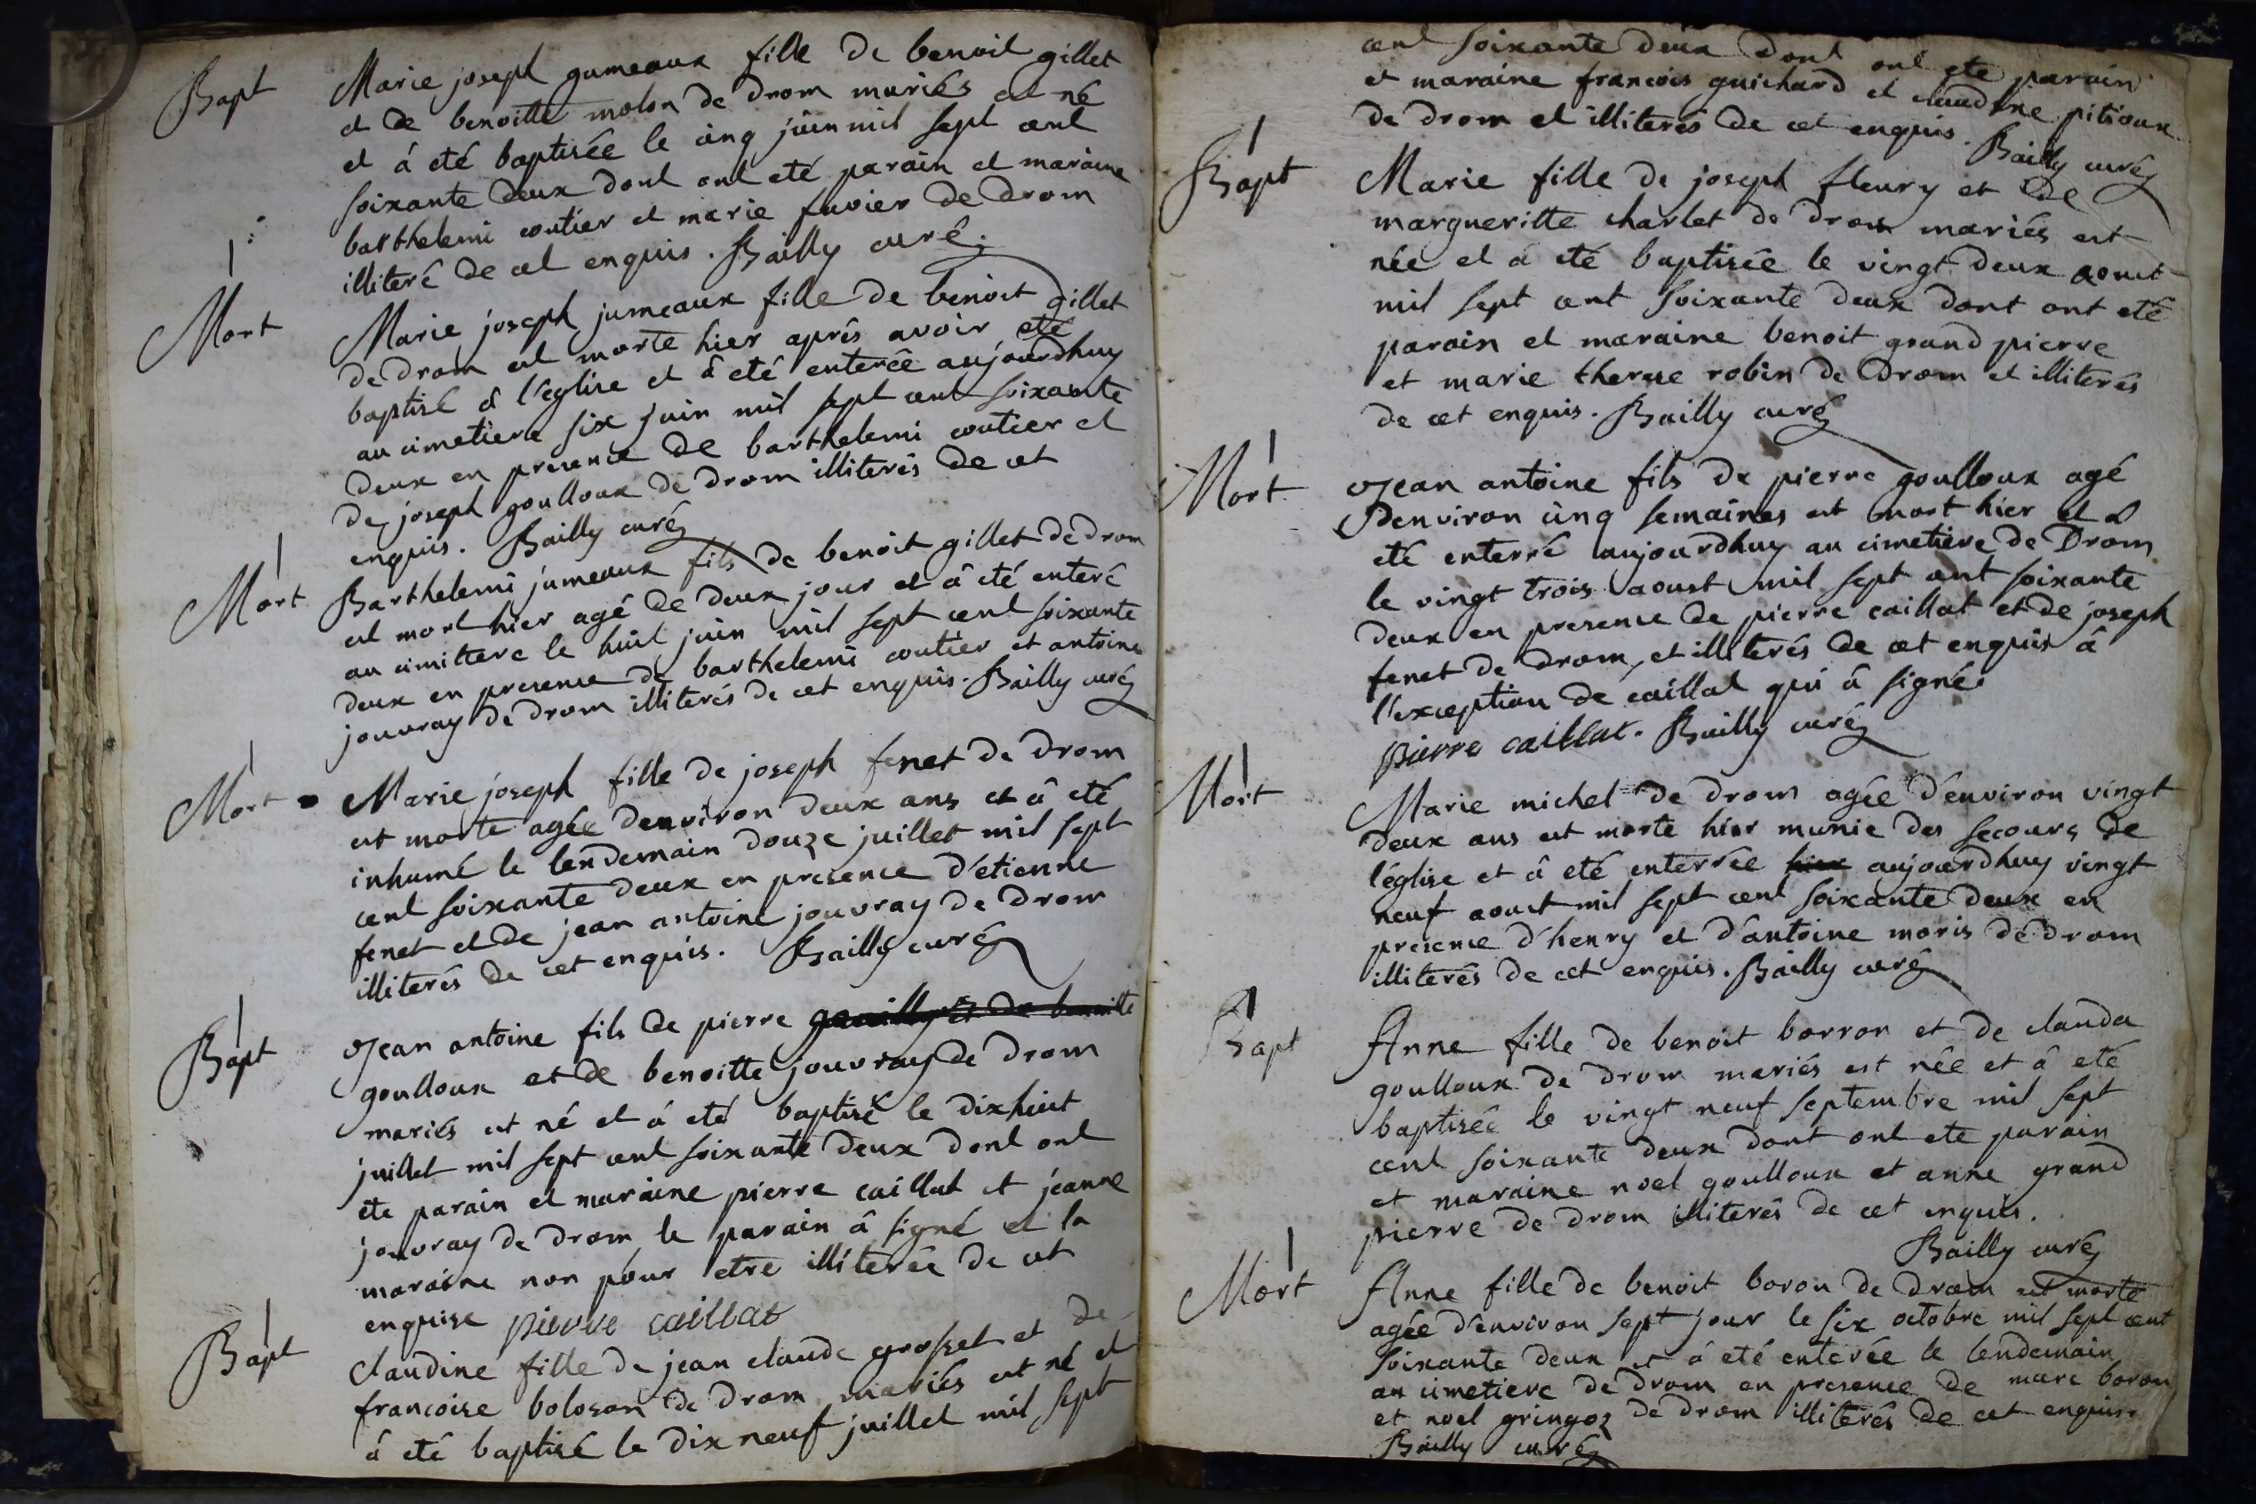 Bapt
Marie joseph gumeaux fille de benoit gillet
et de benoitte molon de drom mariés est né
et á eté baptisée le cinq juin mil sept cent
soixante deux dont ont eté parain et maraine
barthelemi coutier et marie fuvier de drom
illiteré de cet enquis. Bailly curé
Mort
Marie joseph jumeaux fille de benoit gillet
de drom est morte hier aprés avoir eté
baptisé á l'eglise et á eté enterée aujourdhuy
au cimetiere six juin mil sept cent soixante
deux en presence de barthelemi coutier et
de joseph goulloux de drom illiterés de cet
enquis. Bailly curé
Mort
Barthelemi jumeaux fils de benoit gillet de drom
est mort hier agé de deux jour et â été enteré
au cimittere le huit juin mil sept cent soixante
deux en presence de barthelemi coutier et antoine
jouvray de drom illiterés de cet enquis. Bailly curé
Mort
Marie joseph fille de joseph fenet de drom
est morte agée denviron deux ans et â eté
inhumé le lendemain douze juillet mil sept
cent soixante deux en presence d'etienne
fenet et de jean antoine jouvray de drom
illiterés de cet enquis. Bailly curé
Bapt
Jean antoine fils de pierre
goulloux et de benoitte jouvray de drom
mariés est né et á eté baptisé le dixhuit
juillet mil sept cent soixante deux dont ont
ete parain et maraine pierre caillat et jéanne
jouvray de drom le parain â signé et la
maraine non pour etre illiterée de cet
enquise pierre caillat
Bapt
Claudine fille de jean claude grosset et de
francoise boloson de drom mariés est né et
á eté baptisé le dix neuf juillet mil sept
cent soixante deux dont ont ete parain
et maraine francois guichard et claudine pitioux
de drom et illiterés de cet enquis. Bailly curé
Bapt
Marie fille de joseph fleury et de
margueritte charlet de drom mariés est
née et á eté baptisée le vingt deux aoust
mil sept cent soixante deux dont ont eté
parain et maraine benoit grand pierre
et marie therese robin de drom et illiterés
de cet enquis. Bailly curé
Mort
Jean antoine fils de pierre goulloux agé
denviron cinq semaines est mort hier et á
eté enterré aujourdhuy au cimetiere de Drom
le vingt trois aoust mil sept cent soixante
deux en presence de pierre caillat et de joseph
fenet de drom, et illiterés de cet enquis á
l'exception de caillat qui â signé
pierre caillat. Bailly curé
Mort
Marie michel de drom agée d'environ vingt
deux ans est morte hier munie des secours de
l'église et â eté enterrée hier aujourdhuy vingt
neuf aoust mil sept cent soixante deux en
presence d'henry et d'antoine moris de drom
illiterés de cet enquis. Bailly curé
Bapt
Anne fille de benoit borron et de clauda
goulloux de drom mariés est née et â eté
baptisée le vingt neuf septembre mil sept
cent soixante deux dont ont ete parain
et maraine noel goulloux et anne grand
pierre de drom illiterés de cet enquis.
Bailly curé
Mort
Anne fille de benoit boron de drom est morte
agée d'environ sept jour le six octobre mil sept cent
soixante deux et á eté enterée le lendemain
au cimetiere de drom en presence de marc boron
et noel gringoz de drom illiterés de cet enquis.
Bailly curé